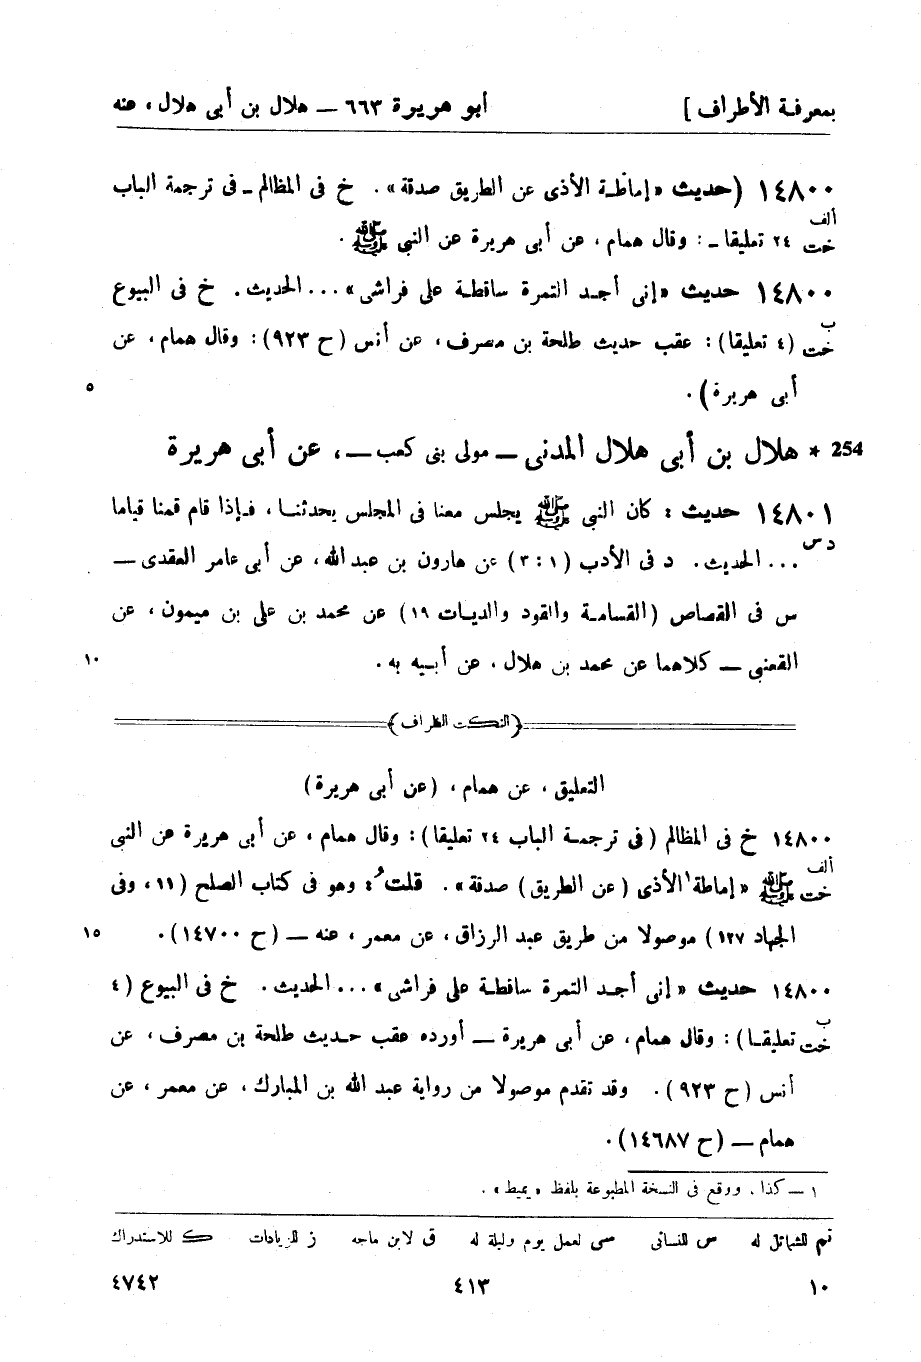 بمعرفة الأطراف ] أبو هريرة ٦٦٣ — هلال بن أبى هلال ، عنه
١٤٨٠٠ (حديث «إماطة الأذى عن الطريق صدقة» . خ فى المظالم - فى ترجمة الباب
ألف
خت ٢٤ تعليقا - : وقال همام ، عن أبى هريرة عن النبى ﷺ .
١٤٨٠٠ حديث «إنى أجد التمرة ساقطة على فراشى» ... الحديث . خ فى البيوع
ب
خت (٤ تعليقا) : عقب حديث طلحة بن مصرف ، عن أنس (ح ٩٢٣) : وقال همام ، عن
أبى هريرة) . ٥
254 * هلال بن أبى هلال المدنى — مولى بنى كعب — ، عن أبى هريرة
١٤٨٠١ حديث : كان النبى ﷺ يجلس معنا فى المجلس يحدثنا ، فإذا قام قمنا قياما
د س ... الحديث . د فى الأدب (١ : ٣) عن هارون بن عبد الله ، عن أبى عامر العقدى —
س فى القصاص (القسامة والقود والديات ١٩) عن محمد بن على بن ميمون ، عن
القعنبى — كلاهما عن محمد بن هلال ، عن أبيه به . ١٠
(النكت الظراف)
التعليق ، عن همام ، (عن أبى هريرة)
١٤٨٠٠ خ فى المظالم (فى ترجمة الباب ٢٤ تعليقا) : وقال همام ، عن أبى هريرة عن النبى
ألف
خت ﷺ «إماطة ١ الأذى (عن الطريق) صدقة» . قلت : وهو فى كتاب الصلح (١١ ، وفى
الجهاد ١٢٧) موصولا من طريق عبد الرزاق ، عن معمر ، عنه — (ح ١٤٧٠٠) . ١٥
١٤٨٠٠ حديث «إنى أجد التمرة ساقطة على فراشى» ... الحديث . خ فى البيوع (٤
ب
خت تعليقا) : وقال همام ، عن أبى هريرة — أورده عقب حديث طلحة بن مصرف ، عن
أنس (ح ٩٢٣) . وقد تقدم موصولا من رواية عبد الله بن المبارك ، عن معمر ، عن
همام — (ح ١٤٦٨٧) .
١ — كذا ، ووقع فى النسخة المطبوعة بلفظ «يميط» .
تم للشمائل له س للنسائى سى لعمل يوم وليلة له ق لابن ماجه ز للزيادات ك للاستدراك
١٠ ٤١٣ ٤٧٤٢